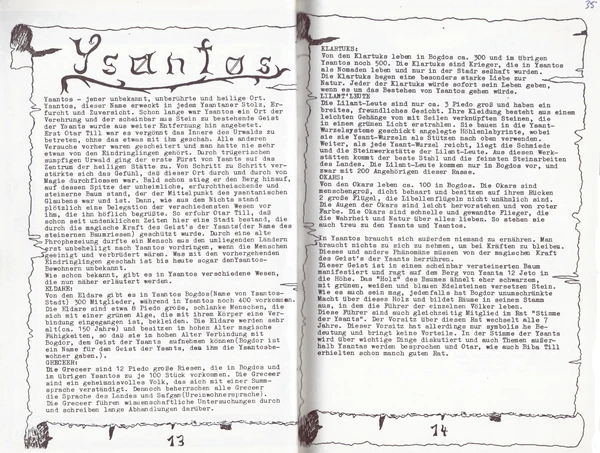 35
Ysantos
Ysantos - jener unbekannt, unberührte und heilige Ort.
Ysantos, dieser Name erweckt in jedem Ysantaner Stolz, Er-
furcht und Zuversicht. Schon lange war Ysantos ein Ort der
Verehrung und der scheinbar aus Stein zu bestehende Geist
der Ysants wurde aus weiter Entfernung hin angebetet.
Erst Otar Till war es vergönnt das Innere des Urwalds zu
betreten, ohne das etwas mit ihm geschah. Alle anderen
Versuche vorher waren gescheitert und man hatte nie mehr
etwas von den Eindringlingen gehört. Durch trügerischen
sumpfigen Urwald ging der erste Fürst von Ysants auf das
Zentrum der heiligen Stätte zu. Von Schritt zu Schritt ver-
stärkte sich das Gefühl, daß dieser Ort durch und durch von
Magie durchflossen war. Bald schon stieg er den Berg hinauf,
auf dessen Spitze der unheimliche, erfurchtheischende und
steinerne Baum stand, der der Mittelpunkt des ysantanischen
Glaubens war und ist. Dann, wie aus dem Nichts stand
plötzlich eine Delegation der verschiedensten Wesen vor
ihm, die ihn höflich begrüßte. So erfuhr Otar Till, daß
schon seit undenklichen Zeiten hier eine Stadt bestand, die
durch die magische Kraft des Geist's der Ysants(der Name des
steinernen Baumriesen) geschützt wurde. Durch eine alte
Phrophezeiung durfte ein Mensch aus den umliegenden Ländern
erst unbehelligt nach Ysantos vordringen, wenn die Menschen
geeinigt und verbrüdert wären. Was mit den vorhergehenden
Eindringlingen geschah ist bis heute sogar den Ysantos-
Bewohnern unbekannt.
Wie schon bekannt, gibt es in Ysantos verschiedene Wesen,
die nun näher erläutert werden.
ELDARE:
Von den Eldare gibt es in Ysantos Bogdos(Name von Ysantos-
Stadt) 500 Mitglieder, während in Ysantos noch 400 vorkommen.
Die Eldare sind etwa 6 Piedo große, schlanke Menschen, die
sich mit einer grünen Alge, die mit ihrem Körper eine Ver-
bindung eingegangen ist, bekleiden. Die Eldare werden sehr
alt(ca. 150 Jahre) und besitzen im hohen Alter magische
Fähigkeiten, so daß sie im hohen Alter Verbindung mit
Bogdor, dem Geist der Ysants aufnehmen können(Bogdor ist
ein Name für den Geist der Ysants, den ihm die Ysantosbe-
wohner gaben.).
GRECEER:
Die Greceer sind 12 Piedo große Riesen, die in Bogdos und
im übrigen Ysantos zu je 100 Stück vorkommen. Die Greceer
sind ein geheimnisvolles Volk, das sich mit einer Summ-
sprache verständigt. Dennoch beherrschen alle Greceer
die Sprache des Landes und Safgan(Ureinwohnersprache).
Die Greceer führen wissenschaftliche Untersuchungen durch
und schreiben lange Abhandlungen darüber.
13
KLARTUKS:
Von den Klartuks leben in Bogdos ca. 300 und im übrigen
Ysantos noch 500. Die Klartuks sind Krieger, die in Ysantos
als Nomaden leben und nur in der Stadt seßhaft wurden.
Die Klartuks hegen eine besonders starke Liebe zur
Natur. Jeder der Klartuks würde sofort sein Leben geben,
wenn es um das Bestehen von Ysantos gehen würde.
LILANT'LEUTE
Die Lilant-Leute sind nur ca. 3 Piedo groß und haben ein
breites, freundliches Gesicht. Ihre Kleidung besteht aus einem
leichten Gehänge mit Seilen verknüpften Steinen, die
in einem grünen Licht erstrahlen. Sie bauen in die Ysant-
Wurzelsysteme geschickt angelegte Höhlenlabyrinte, wobei
sie sie Ysant-Wurzeln als Stützen nach oben verwenden.
Weiter, als jede Ysant-Wurzel reicht, liegt die Schmiede
und die Steinwerkstätte der Lilant-Leute. Aus diesen Werk-
stätten kommt der beste Stahl und die feinsten Steinarbeiten
des Landes. Die Lilant-Leute kommen nur in Bogdos vor, und
zwar mit 200 Angehörigen dieser Rasse.
OKARS:
Von den Okars leben ca. 100 in Bogdos. Die Okars sind
menschengroß, dicht behaart und besitzen auf ihrem Rücken
2 große Flügel, die Libellenflügeln nicht unähnlich sind.
Die Augen der Okars sind leicht hervorstehend und von roter
Farbe. Die Okars sind schnelle und gewandte Flieger, die
die Wahrheit und Natur über alles lieben. So stehen sie
auch treu zu den Ysants und Ysantos.
In Ysantos braucht sich außerdem niemand zu ernähren. Man
braucht nichts zu sich zu nehmen, um bei Kräften zu bleiben.
Dieses und andere Phänomäne müssen von der magischen Kraft
des Geist's der Ysants herrühren.
Dieser Geist ist in einem scheinbar versteinerten Baum
manifestiert und ragt auf dem Berg von Ysants 12 Jeto in
die Höhe. Das "Holz" des Baumes ähnelt eher schwarzem,
mit grünen, weißen und blauen Edelsteinen versetzten Stein.
Wie es auch sein mag, jedenfalls hat Bogdor unumschränkte
Macht über dieses Holz und bildet Räume in seinem Stamm
aus, in dem die Führer der einzelnen Völker leben.
Diese Führer sind auch gleichzeitig Mitglied im Rat "Stimme
der Ysants". Der Vorsitz über diesen Rat wechselt alle 7
Jahre. Dieser Vorsitz hat allerdings nur symbolische Be-
deutung und bringt keine Vorteile. In der Stimme der Ysants
wird über wichtige Dinge diskutiert und auch Themen außer-
halb Ysantos werden besprochen und Otar, wie auch Riba Till
erhielten schon manch guten Rat.
14